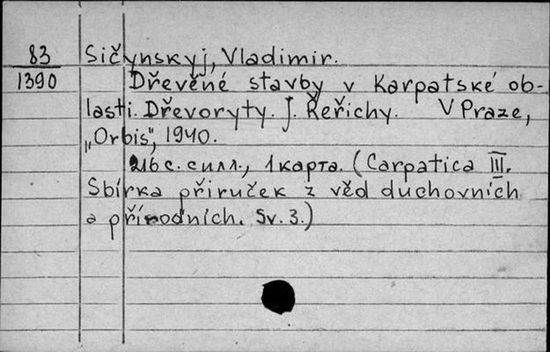 83
1390
Sičynskyj, Vladimir.
Dřevěné stavby v Karpatské ob-
lasti. Dřevoryty. J. Řeřichy. V Praze,
„Orbis", 1940.
216 с. с илл., 1 карта. (Carpatica III.
Sbírka příruček z věd duchovních
a přírodních. Sv. 3.)